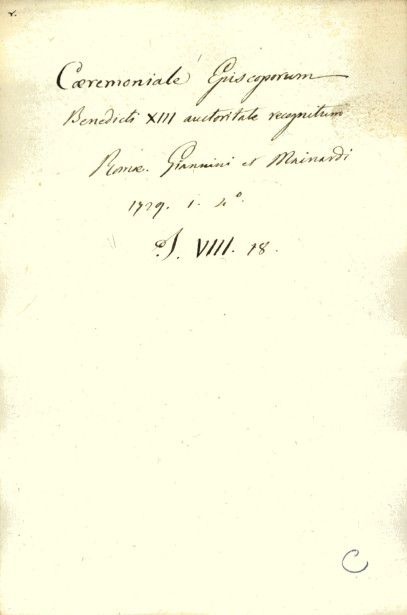 Cæremoniale Episcoporum
Benedicti XIII auctoritate recognitum
Romæ. Giannini et Mainardi
1729. 1. 4°.
VIII. 18.
C